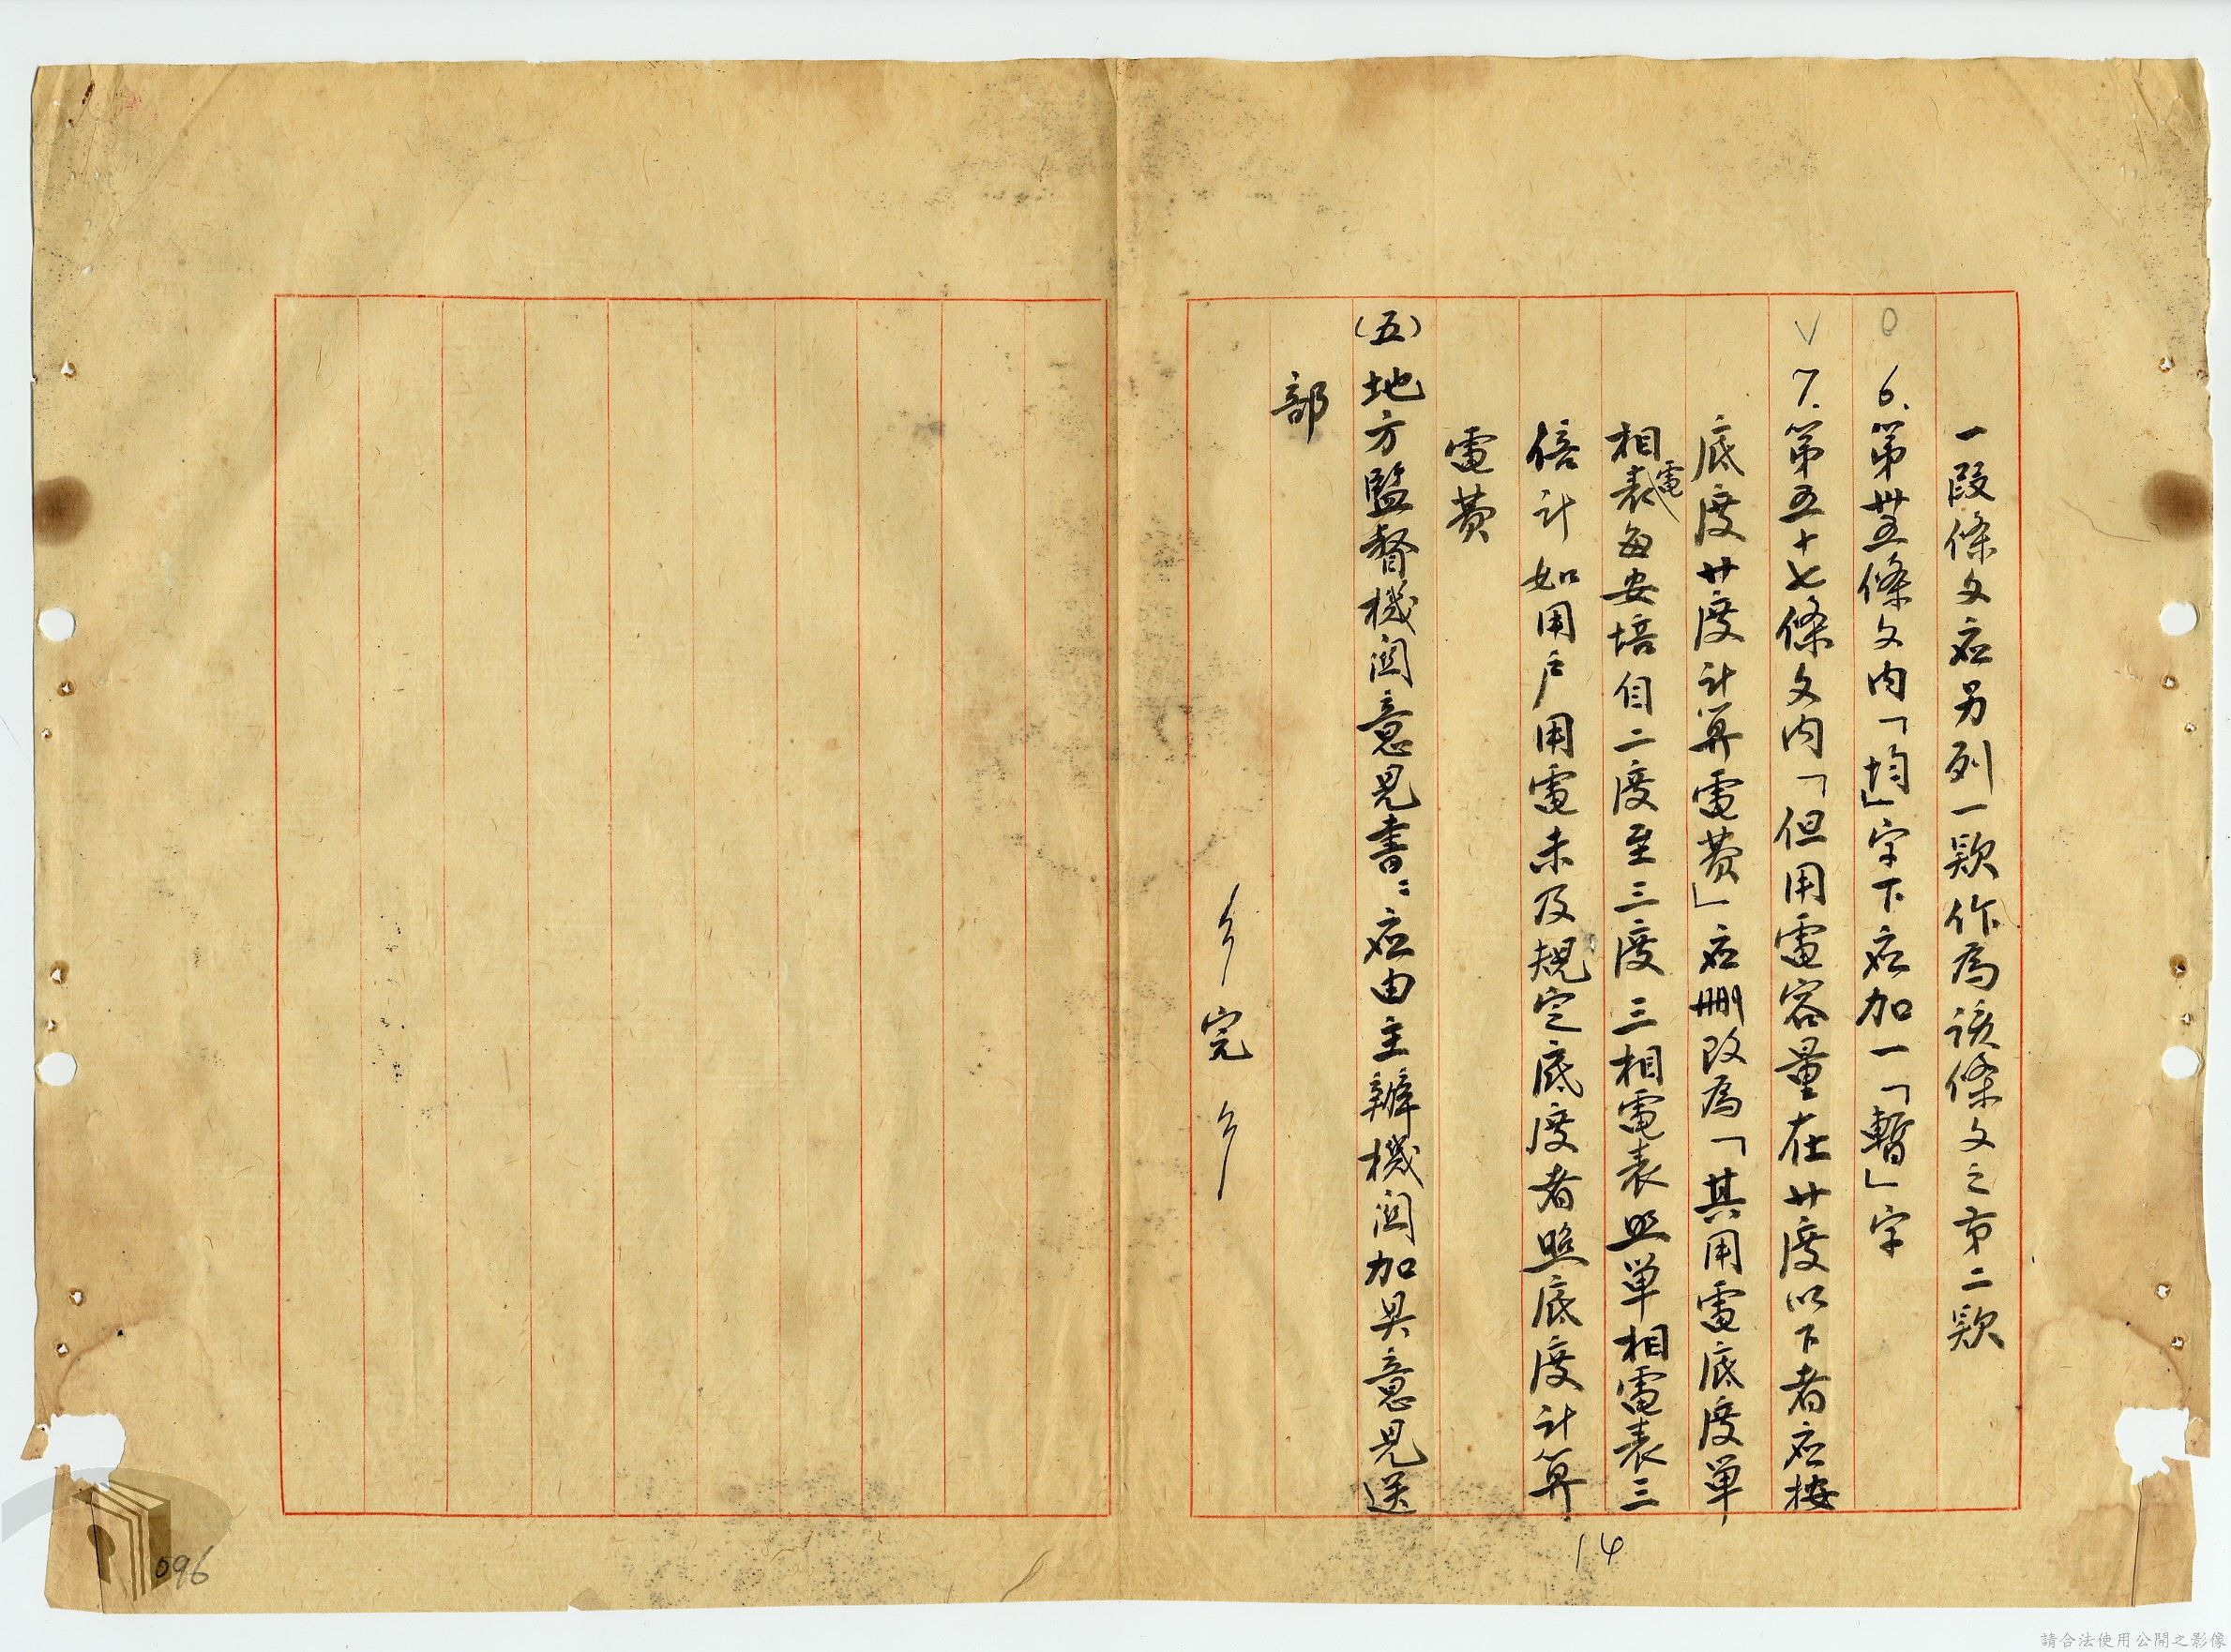 一段條文应另列一欵作為該條文之苐二欵
0 6.第卅五條文內「均」字下应加一「暫」字
V 7.第五十七條文內「但用電容量在廿度以下者应按
底度廿度計算電費」应删改為「其用電底度單
相電表每安培自二度至三度三相電表照单相電表三
倍計如用户用電未及規定底度者照底度計算
電費
(五)地方監督機関意見書：应由主辦機関加具意見送
部
完
14
096
請合法使用公開之影像